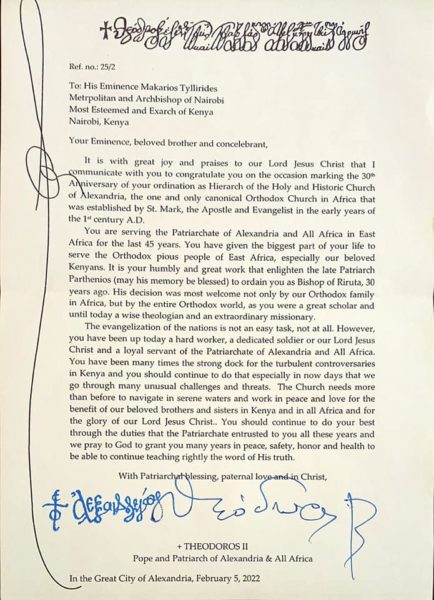 Ref. no.: 25/2
To: His Eminence Makarios Tyllirides
Metrpolitan and Archbishop of Nairobi
Most Esteemed and Exarch of Kenya
Nairobi, Kenya
Your Eminence, beloved brother and concelebrant,
It is with great joy and praises to our Lord Jesus Christ that I
communicate with you to congratulate you on the occasion marking the 30th
Anniversary of your ordination as Hierarch of the Holy and Historic Church
of Alexandria, the one and only canonical Orthodox Church in Africa that
was established by St. Mark, the Apostle and Evangelist in the early years of
the 1st century A.D.
You are serving the Patriarchate of Alexandria and All Africa in East
Africa for the last 45 years. You have given the biggest part of your life to
serve the Orthodox pious people of East Africa, especially our beloved
Kenyans. It is your humbly and great work that enlighten the late Patriarch
Parthenios (may his memory be blessed) to ordain you as Bishop of Riruta, 30
years ago. His decision was most welcome not only by our Orthodox family
in Africa, but by the entire Orthodox world, as you were a great scholar and
until today a wise theologian and an extraordinary missionary.
The evangelization of the nations is not an easy task, not at all. However,
you have been up today a hard worker, a dedicated soldier or our Lord Jesus
Christ and a loyal servant of the Patriarchate of Alexandria and All Africa.
You have been many times the strong dock for the turbulent controversaries
in Kenya and you should continue to do that especially in now days that we
go through many unusual challenges and threats. The Church needs more
than before to navigate in serene waters and work in peace and love for the
benefit of our beloved brothers and sisters in Kenya and in all Africa and for
the glory of our Lord Jesus Christ.. You should continue to do your best
through the duties that the Patriarchate entrusted to you all these years and
we pray to God to grant you many years in peace, safety, honor and health to
be able to continue teaching rightly the word of His truth.
With Patriarchal blessing, paternal love and in Christ,
+ THEODOROS II
Pope and Patriarch of Alexandria & All Africa
In the Great City of Alexandria, February 5, 2022